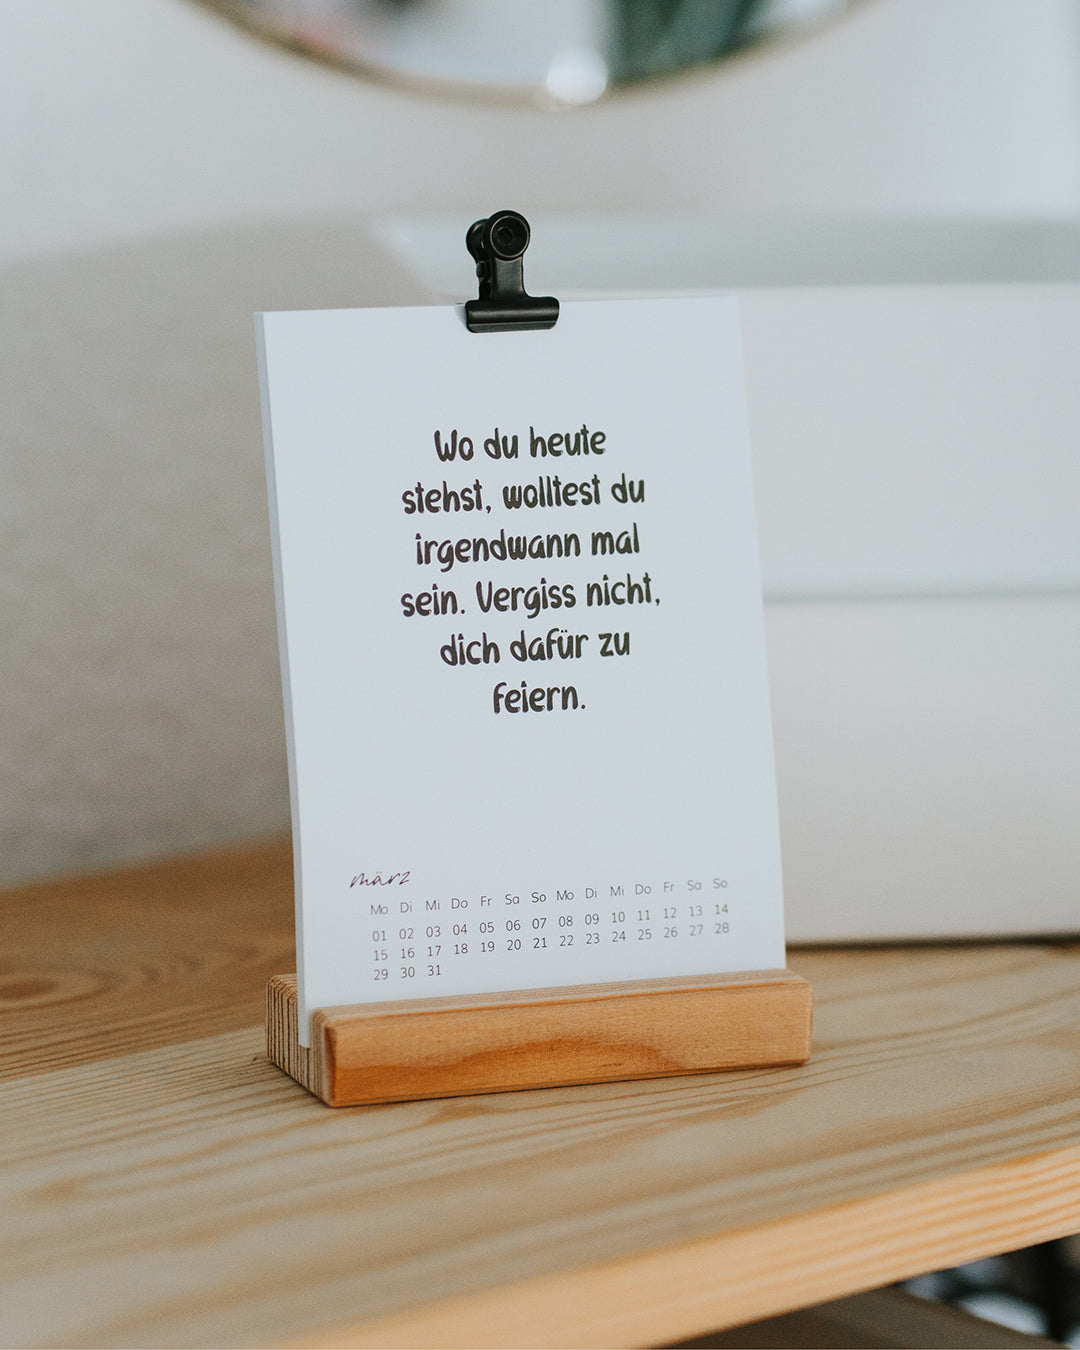 Wo du heute
stehst, wolltest du
irgendwann mal
sein. Vergiss nicht,
dich dafür zu
feiern.
märz
Mo Di Mi Do Fr Sa So Mo Di Mi Do Fr Sa So
01 02 03 04 05 06 07 08 09 10 11 12 13 14
15 16 17 18 19 20 21 22 23 24 25 26 27 28
29 30 31